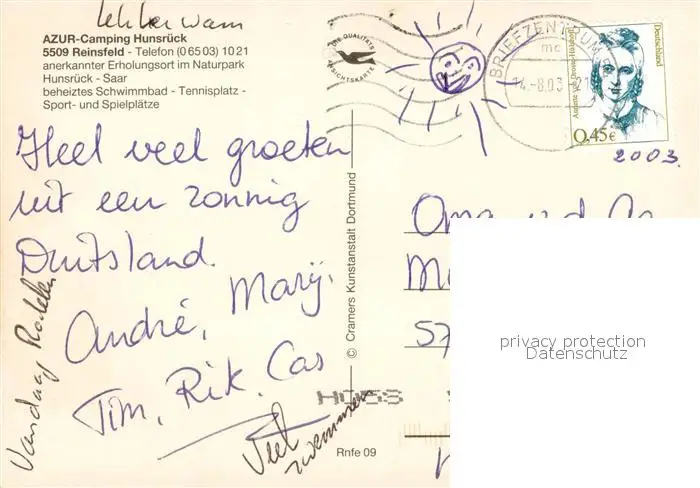 lekker warm
AZUR-Camping Hunsrück
5509 Reinsfeld - Telefon (0 65 03) 10 21
anerkannter Erholungsort im Naturpark
Hunsrück - Saar
beheiztes Schwimmbad - Tennisplatz -
Sport- und Spielplätze
DIE QUALITÄTS
ANSICHTSKARTE
BRIEFZENTRUM
mc
14.-8.03
21
Annette von Droste-Hülshoff
Deutschland
0,45€
2003.
Heel veel groeten
uit een zonnig
Duitsland.
André, Marij,
Tim, Rik, Cas
Vandaag
Veel
zwemmen
© Cramers Kunstanstalt Dortmund
Rnfe 09
Oma
57
privacy protection
Datenschutz